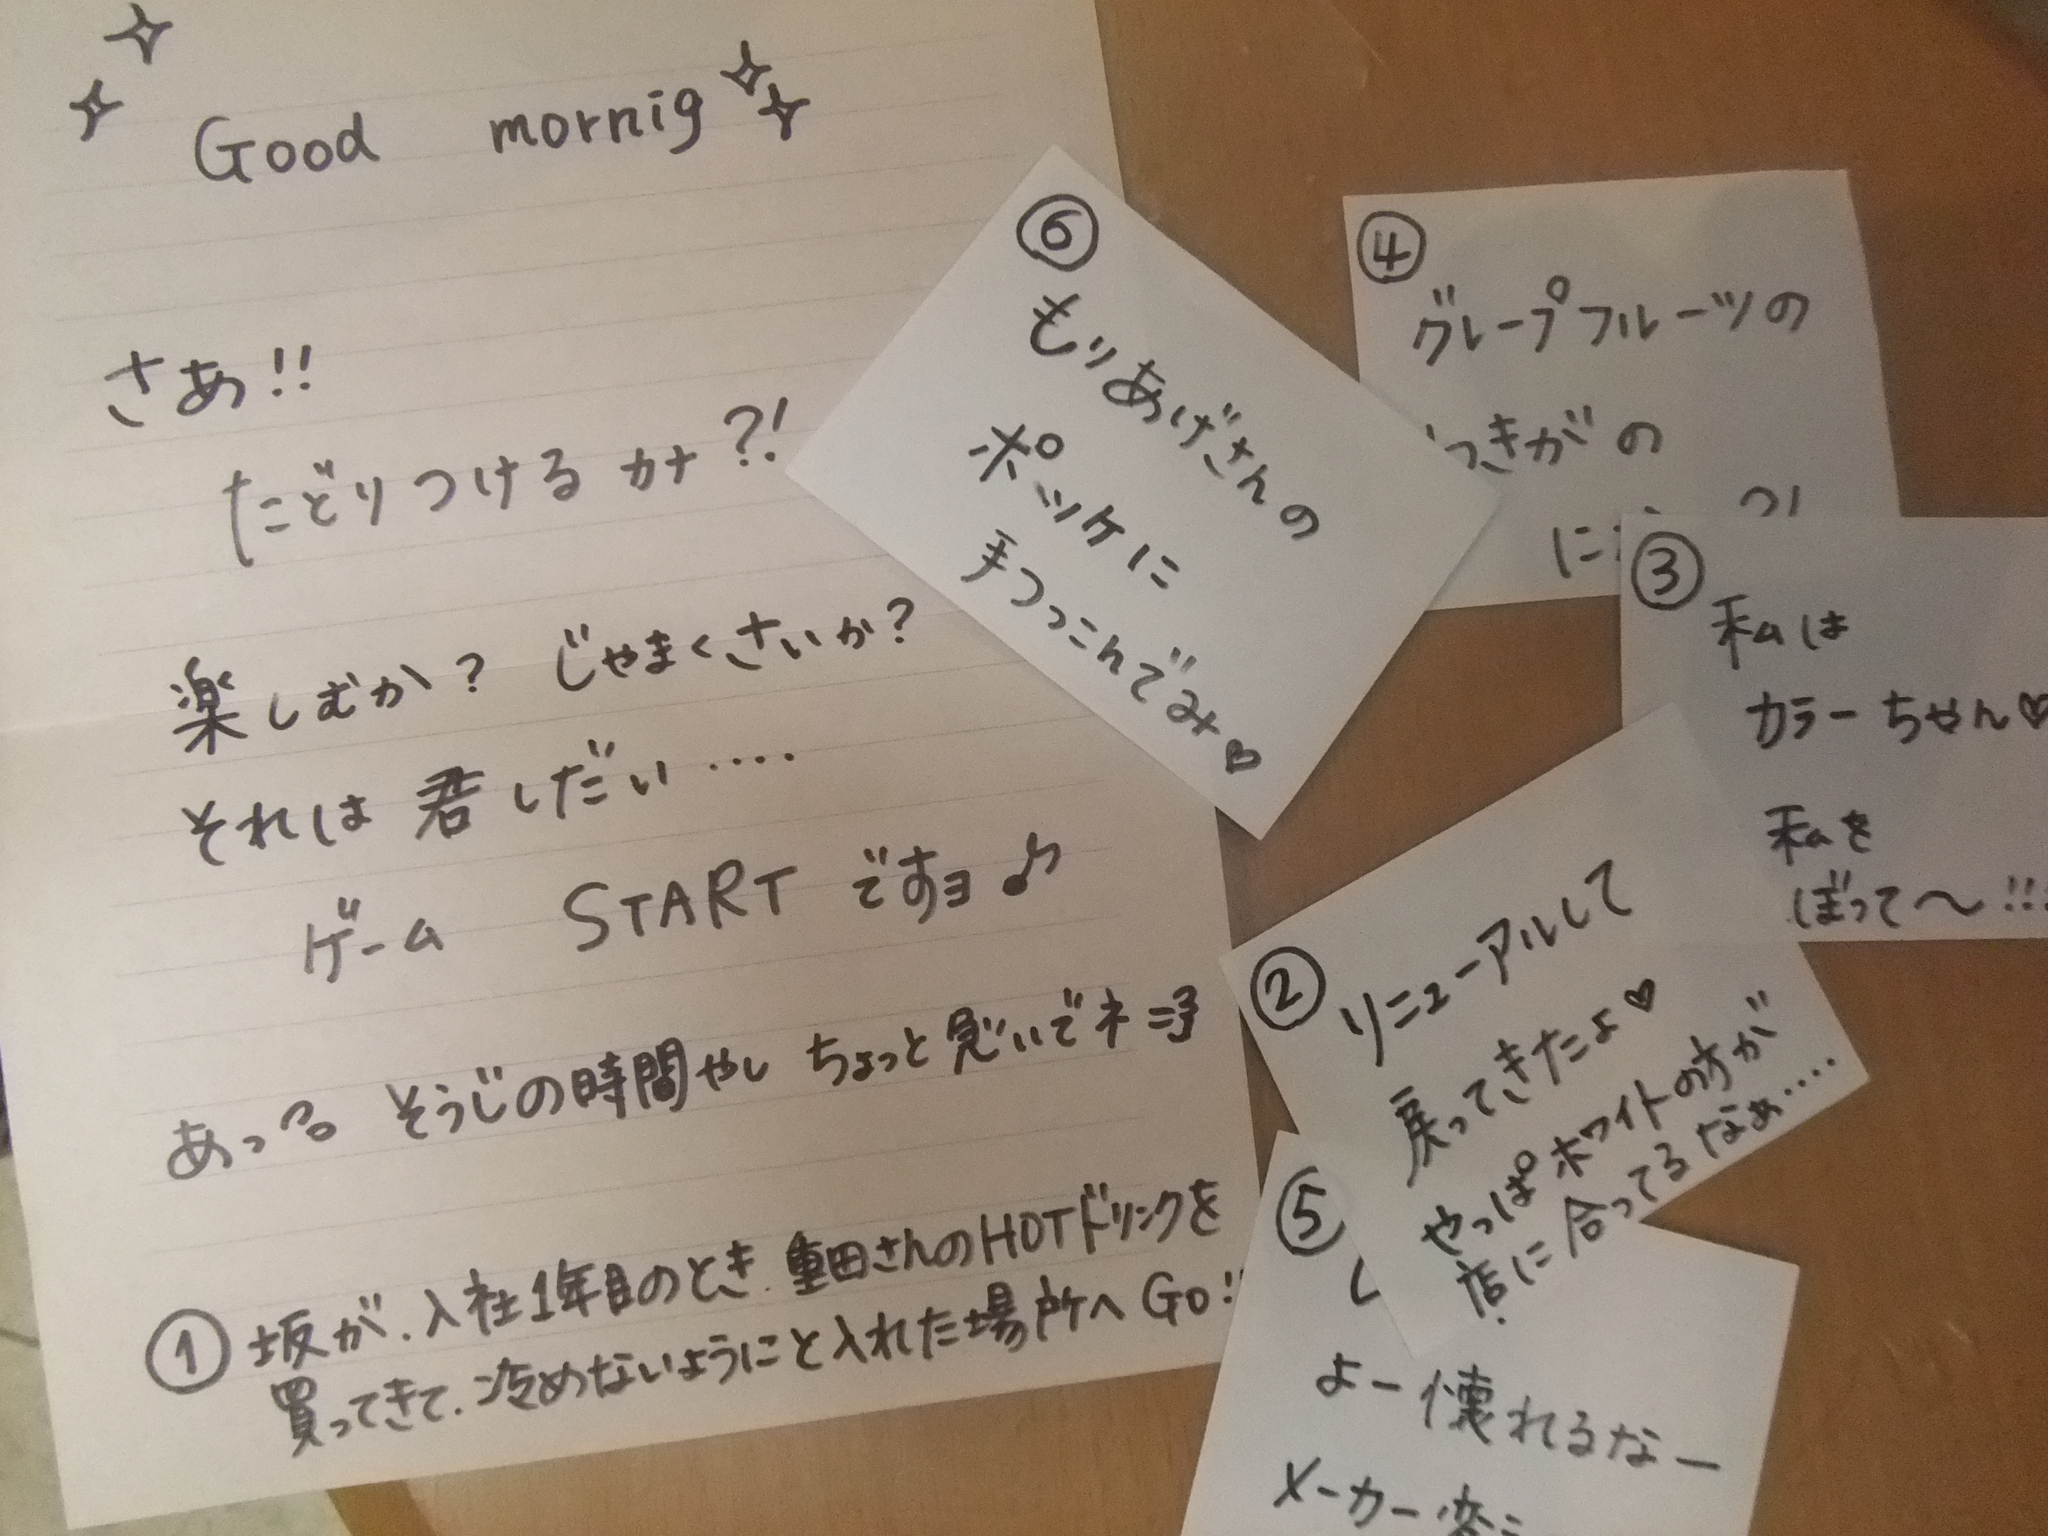 Good mornig
さぁ!!
たどりつけるカナ?!
楽しむか? じゃまくさいか?
それは君しだい‥‥
ゲーム STARTですヨ♪
あっ そうじの時間やし ちょっと急いでネ
① 坂が、入社1年目のとき、重田さんのHOTドリンクを
買ってきて、冷めないようにと入れた場所へGO!!
⑥
もりあげさんの
ポッケに
手つっこんでみ♡
④
グレープフルーツの
つきがの
に
③
私は
カラーちゃん♡
私を
ぼって〜!!!
②
リニューアルして
戻ってきたよ♡
やっぱホワイトの方が
店に合ってるなぁ‥‥
⑤
よー壊れるなー
メーカー変